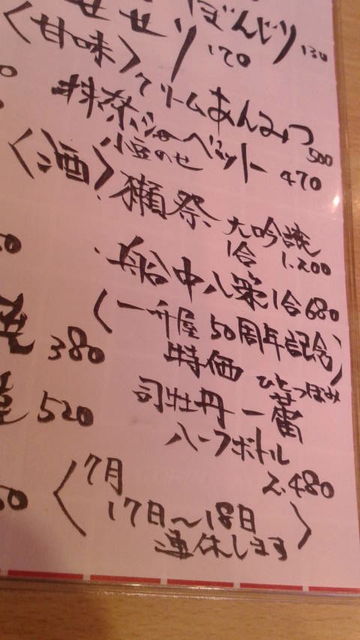 せせり 170
ぼんじり 130
〈甘味〉
クリームあんみつ 500
抹茶シャーベット
小豆のせ 470
〈酒〉
獺祭 大吟醸
1合 1.200
船中八策 1合 680
(一升屋 50周年記念)
特価 ひとつぼみ
司牡丹 一蕾
ハーフボトル
2.480
380
520
〈7月
17日〜18日
連休します〉